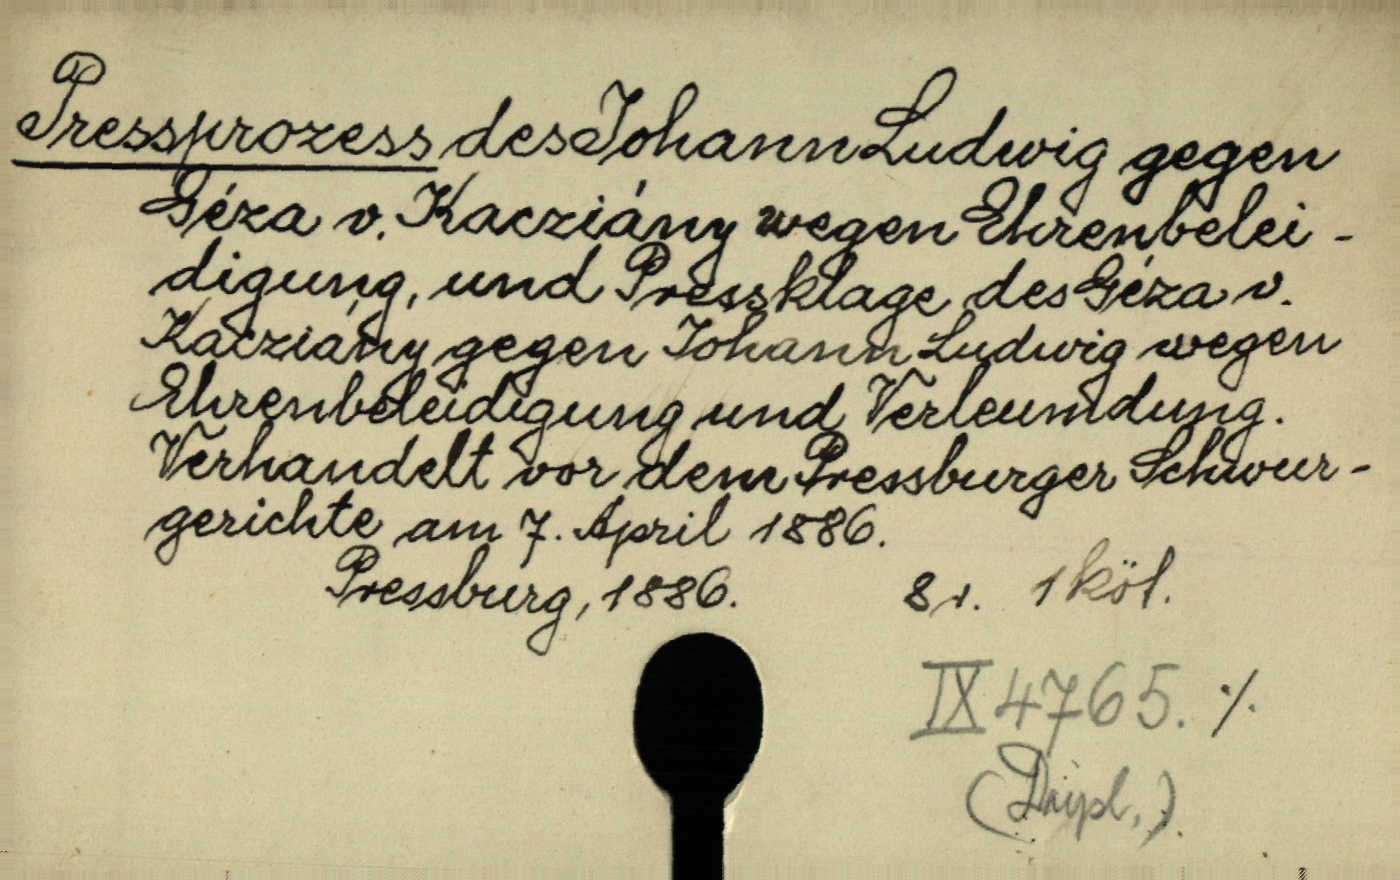 Pressprozess des Johann Ludwig gegen
Géza v. Kacziány wegen Ehrenbelei-
digung, und Pressklage des Géza v.
Kacziány gegen Johann Ludwig wegen
Ehrenbeleidigung und Verleumdung.
Verhandelt vor dem Pressburger Schwur-
gerichte am 7. April 1886.
Pressburg, 1886. 8r. 1 köt.
IX 4765. ⁒
(Dupl.).